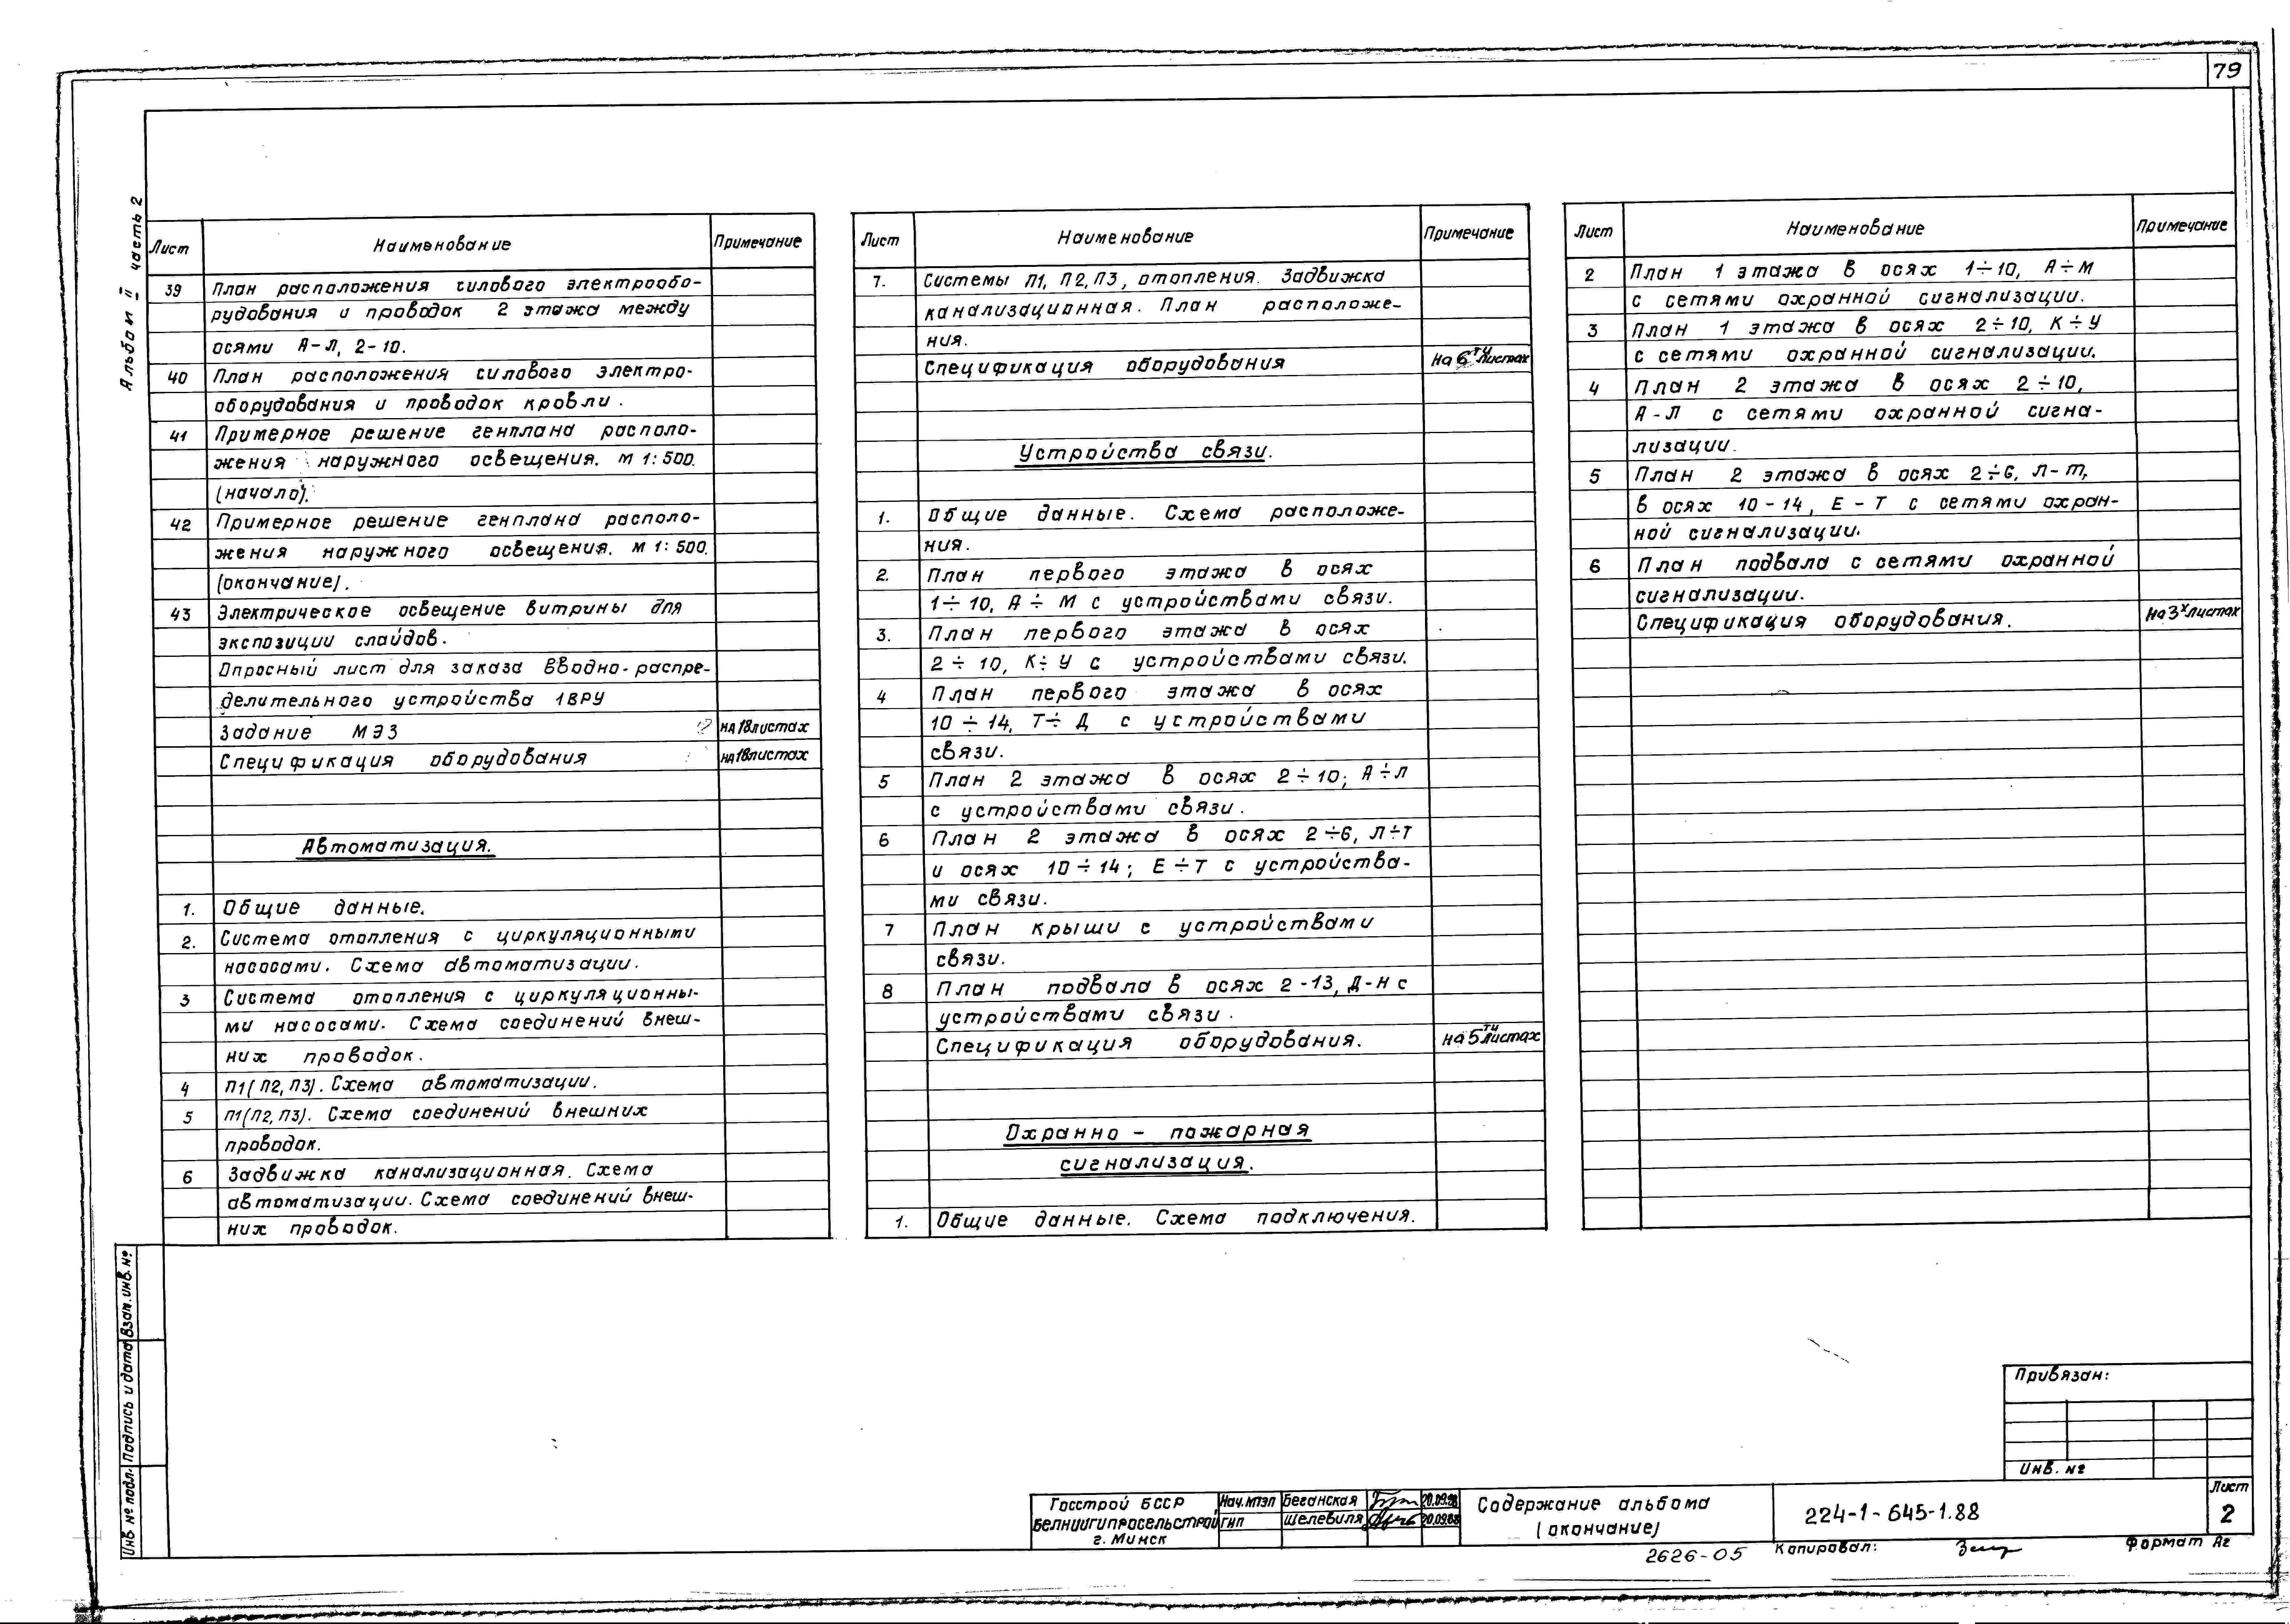 79
Альбом II часть 2
Лист Наименование Примечание
39 План расположения силового электрообо-
рудования и проводок 2 этажа между
осями А-Л, 2-10.
40 План расположения силового электро-
оборудования и проводок кровли.
41 Примерное решение генплана располо-
жения наружного освещения. М 1:500.
(начало).
42 Примерное решение генплана располо-
жения наружного освещения. М 1:500.
(окончание).
43 Электрическое освещение витрины для
экспозиции слайдов.
Опросный лист для заказа вводно-распре-
делительного устройства 1ВРУ
Задание МЭЗ на 18 листах
Спецификация оборудования на 18 листах
Автоматизация.
1. Общие данные.
2. Система отопления с циркуляционными
насосами. Схема автоматизации.
3 Система отопления с циркуляционны-
ми насосами. Схема соединений внеш-
них проводок.
4 П1(П2,П3). Схема автоматизации.
5 П1(П2,П3). Схема соединений внешних
проводок.
6 Задвижка канализационная. Схема
автоматизации. Схема соединений внеш-
них проводок.
Лист Наименование Примечание
7. Системы П1, П2, П3, отопления. Задвижка
канализационная. План расположе-
ния.
Спецификация оборудования на 6ти листах
Устройства связи.
1. Общие данные. Схема расположе-
ния.
2. План первого этажа в осях
1÷10, А÷М с устройствами связи.
3. План первого этажа в осях
2÷10, К÷У с устройствами связи.
4 План первого этажа в осях
10÷14, Т÷Д с устройствами
связи.
5 План 2 этажа в осях 2÷10; А÷Л
с устройствами связи.
6 План 2 этажа в осях 2÷6, Л÷Т
и осях 10÷14; Е÷Т с устройства-
ми связи.
7 План крыши с устройствами
связи.
8 План подвала в осях 2-13, Д-Н с
устройствами связи.
Спецификация оборудования. на 5ти листах
Охранно - пожарная
сигнализация.
1. Общие данные. Схема подключения.
Лист Наименование Примечание
2 План 1 этажа в осях 1÷10, А÷М
с сетями охранной сигнализации.
3 План 1 этажа в осях 2÷10, К÷У
с сетями охранной сигнализации.
4 План 2 этажа в осях 2÷10,
А-Л с сетями охранной сигна-
лизации.
5 План 2 этажа в осях 2÷6, Л-Т,
в осях 10-14, Е-Т с сетями охран-
ной сигнализации.
6 План подвала с сетями охранной
сигнализации.
Спецификация оборудования. на 3х листах
Взам. инв. №
Подпись и дата
Инв № подл.
Привязан:
Инв. №
Госстрой БССР
БЕЛНИИГИПРОСЕЛЬСТРОЙ
г. Минск
Нач. МПЭП Беганская 20.09.88
ГИП Шелевиля 20.09.88
Содержание альбома
(окончание)
224-1-645-1.88
Лист
2
2626-05 Копировал: Формат А2